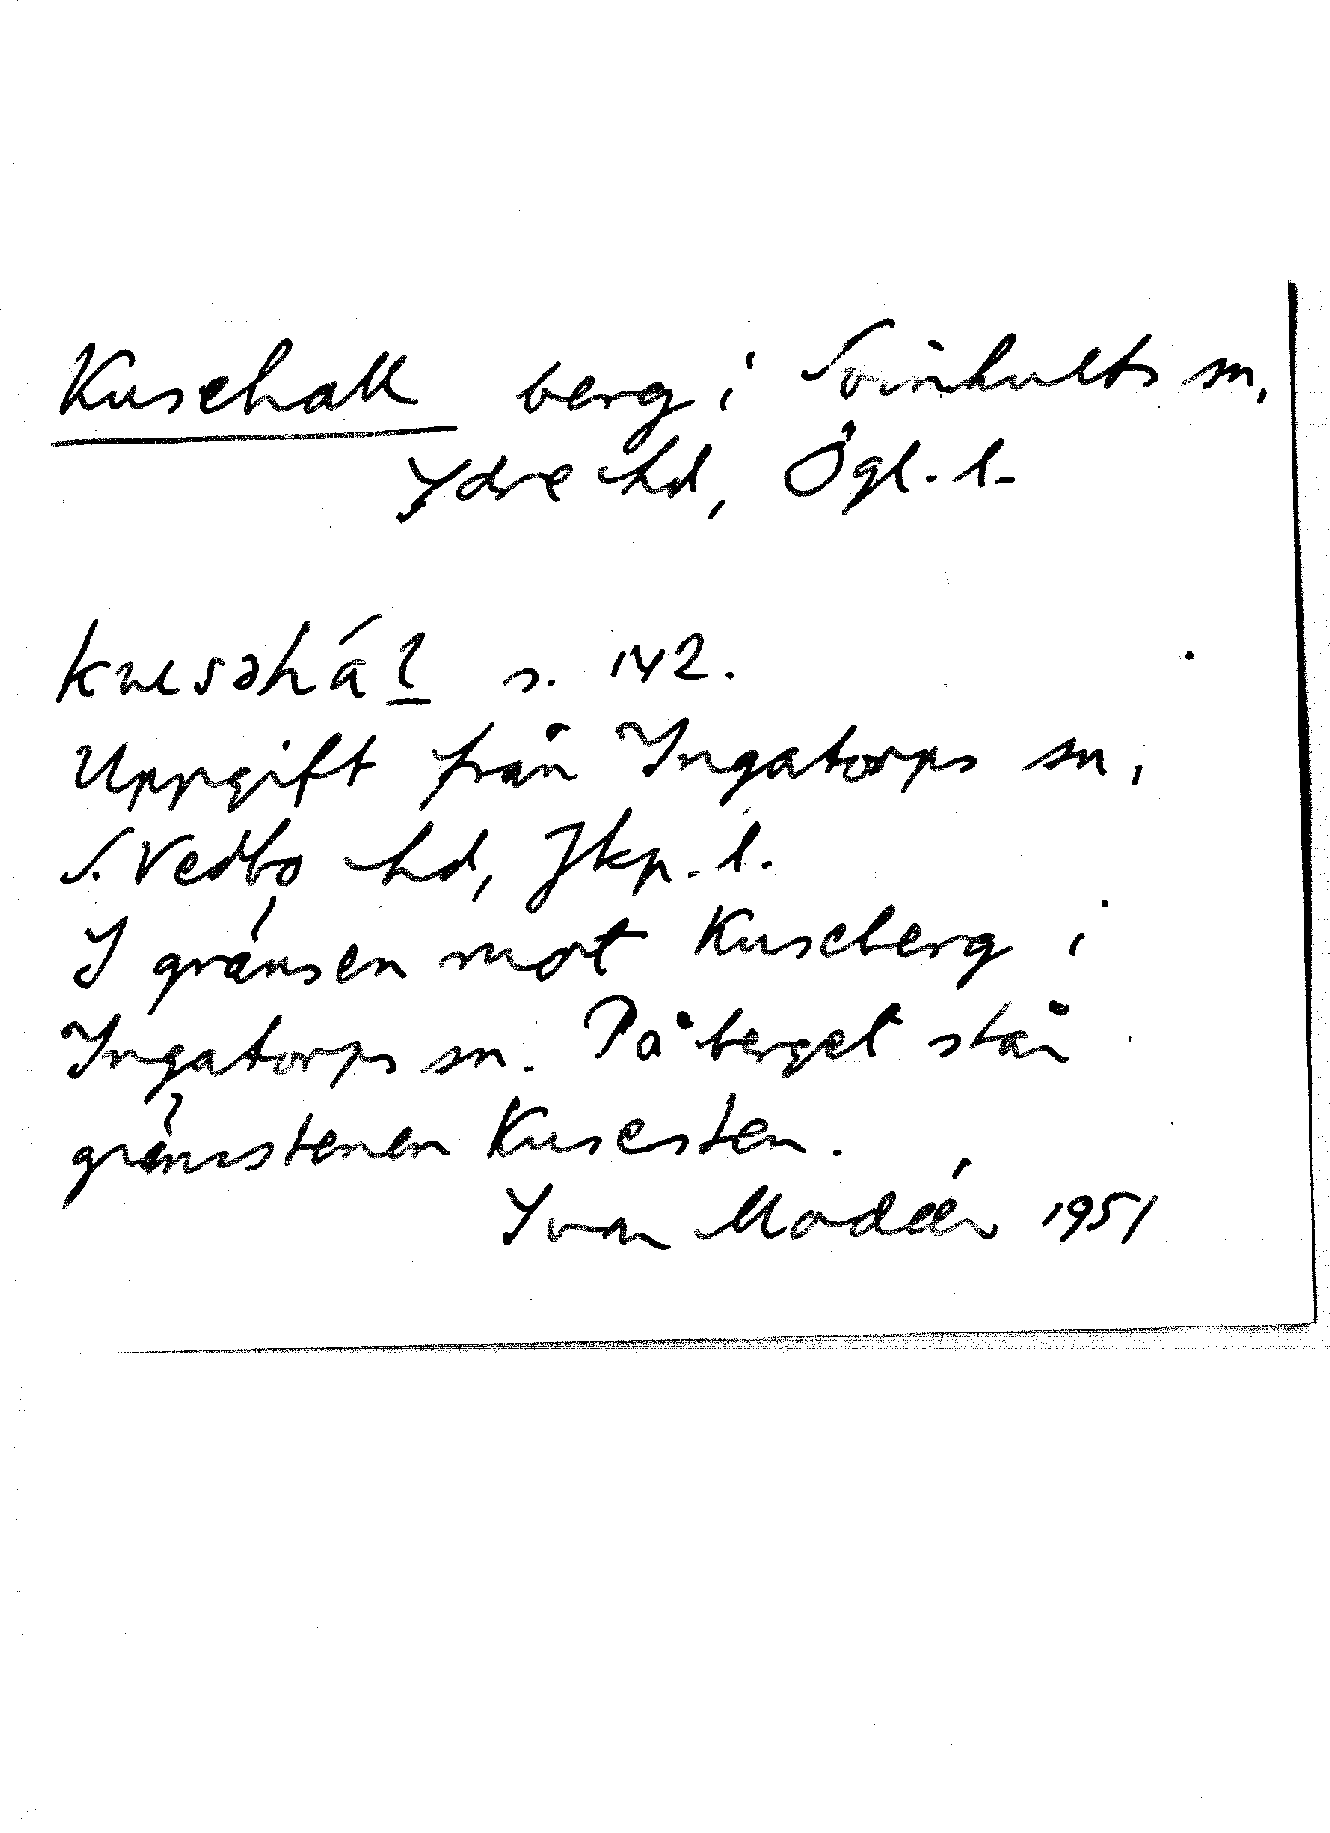 Kusehall berg i Svinhults sn,
Ydre hd, Ögl. l.
s. 142.
Uppgift från Ingatorps sn,
S. Vedbo hd, Jkp. l.
I gränsen mot Kuseberg i
Ingatorps sn. På berget står
gränsstenen Kusesten.
Ivar Modéer 1951